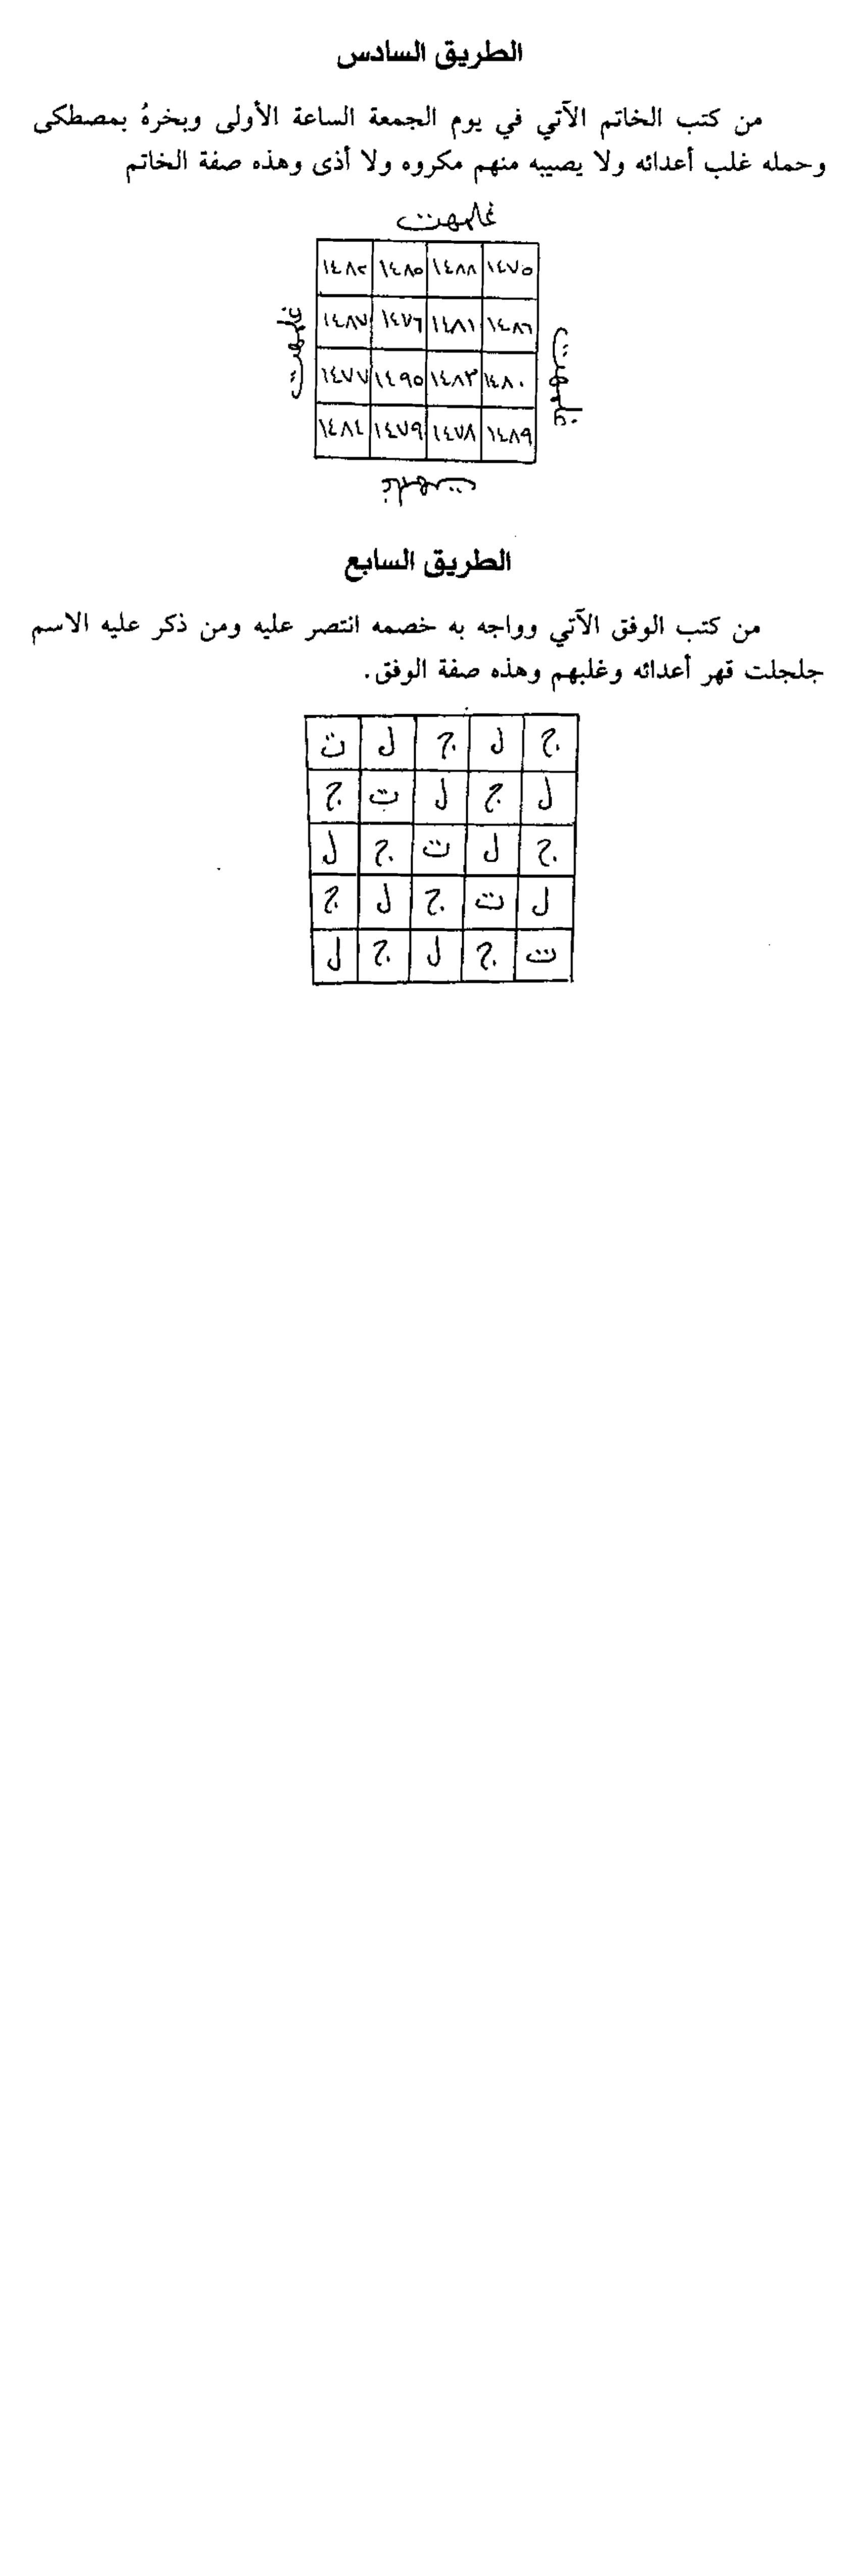 الطريق السادس
من كتب الخاتم الآتي في يوم الجمعة الساعة الأولى وبخرهُ بمصطكى
وحمله غلب أعدائه ولا يصيبه منهم مكروه ولا أذى وهذه صفة الخاتم
غلمهت
١٤٧٥ ١٤٨٨ ١٤٨٥ ١٤٨٢
١٤٨٦ ١٤٨١ ١٤٧٦ ١٤٨٧
١٤٨٠ ١٤٨٣ ١٤٩٥ ١٤٧٧
١٤٨٩ ١٤٧٨ ١٤٧٩ ١٤٨٤
غلمهت
غلمهت
غلمهت
الطريق السابع
من كتب الوفق الآتي وواجه به خصمه انتصر عليه ومن ذكر عليه الاسم
جلجلت قهر أعدائه وغلبهم وهذه صفة الوفق.
ج ل ج ل ت
ل ج ل ت ج
ج ل ت ج ل
ل ت ج ل ج
ت ج ل ج ل